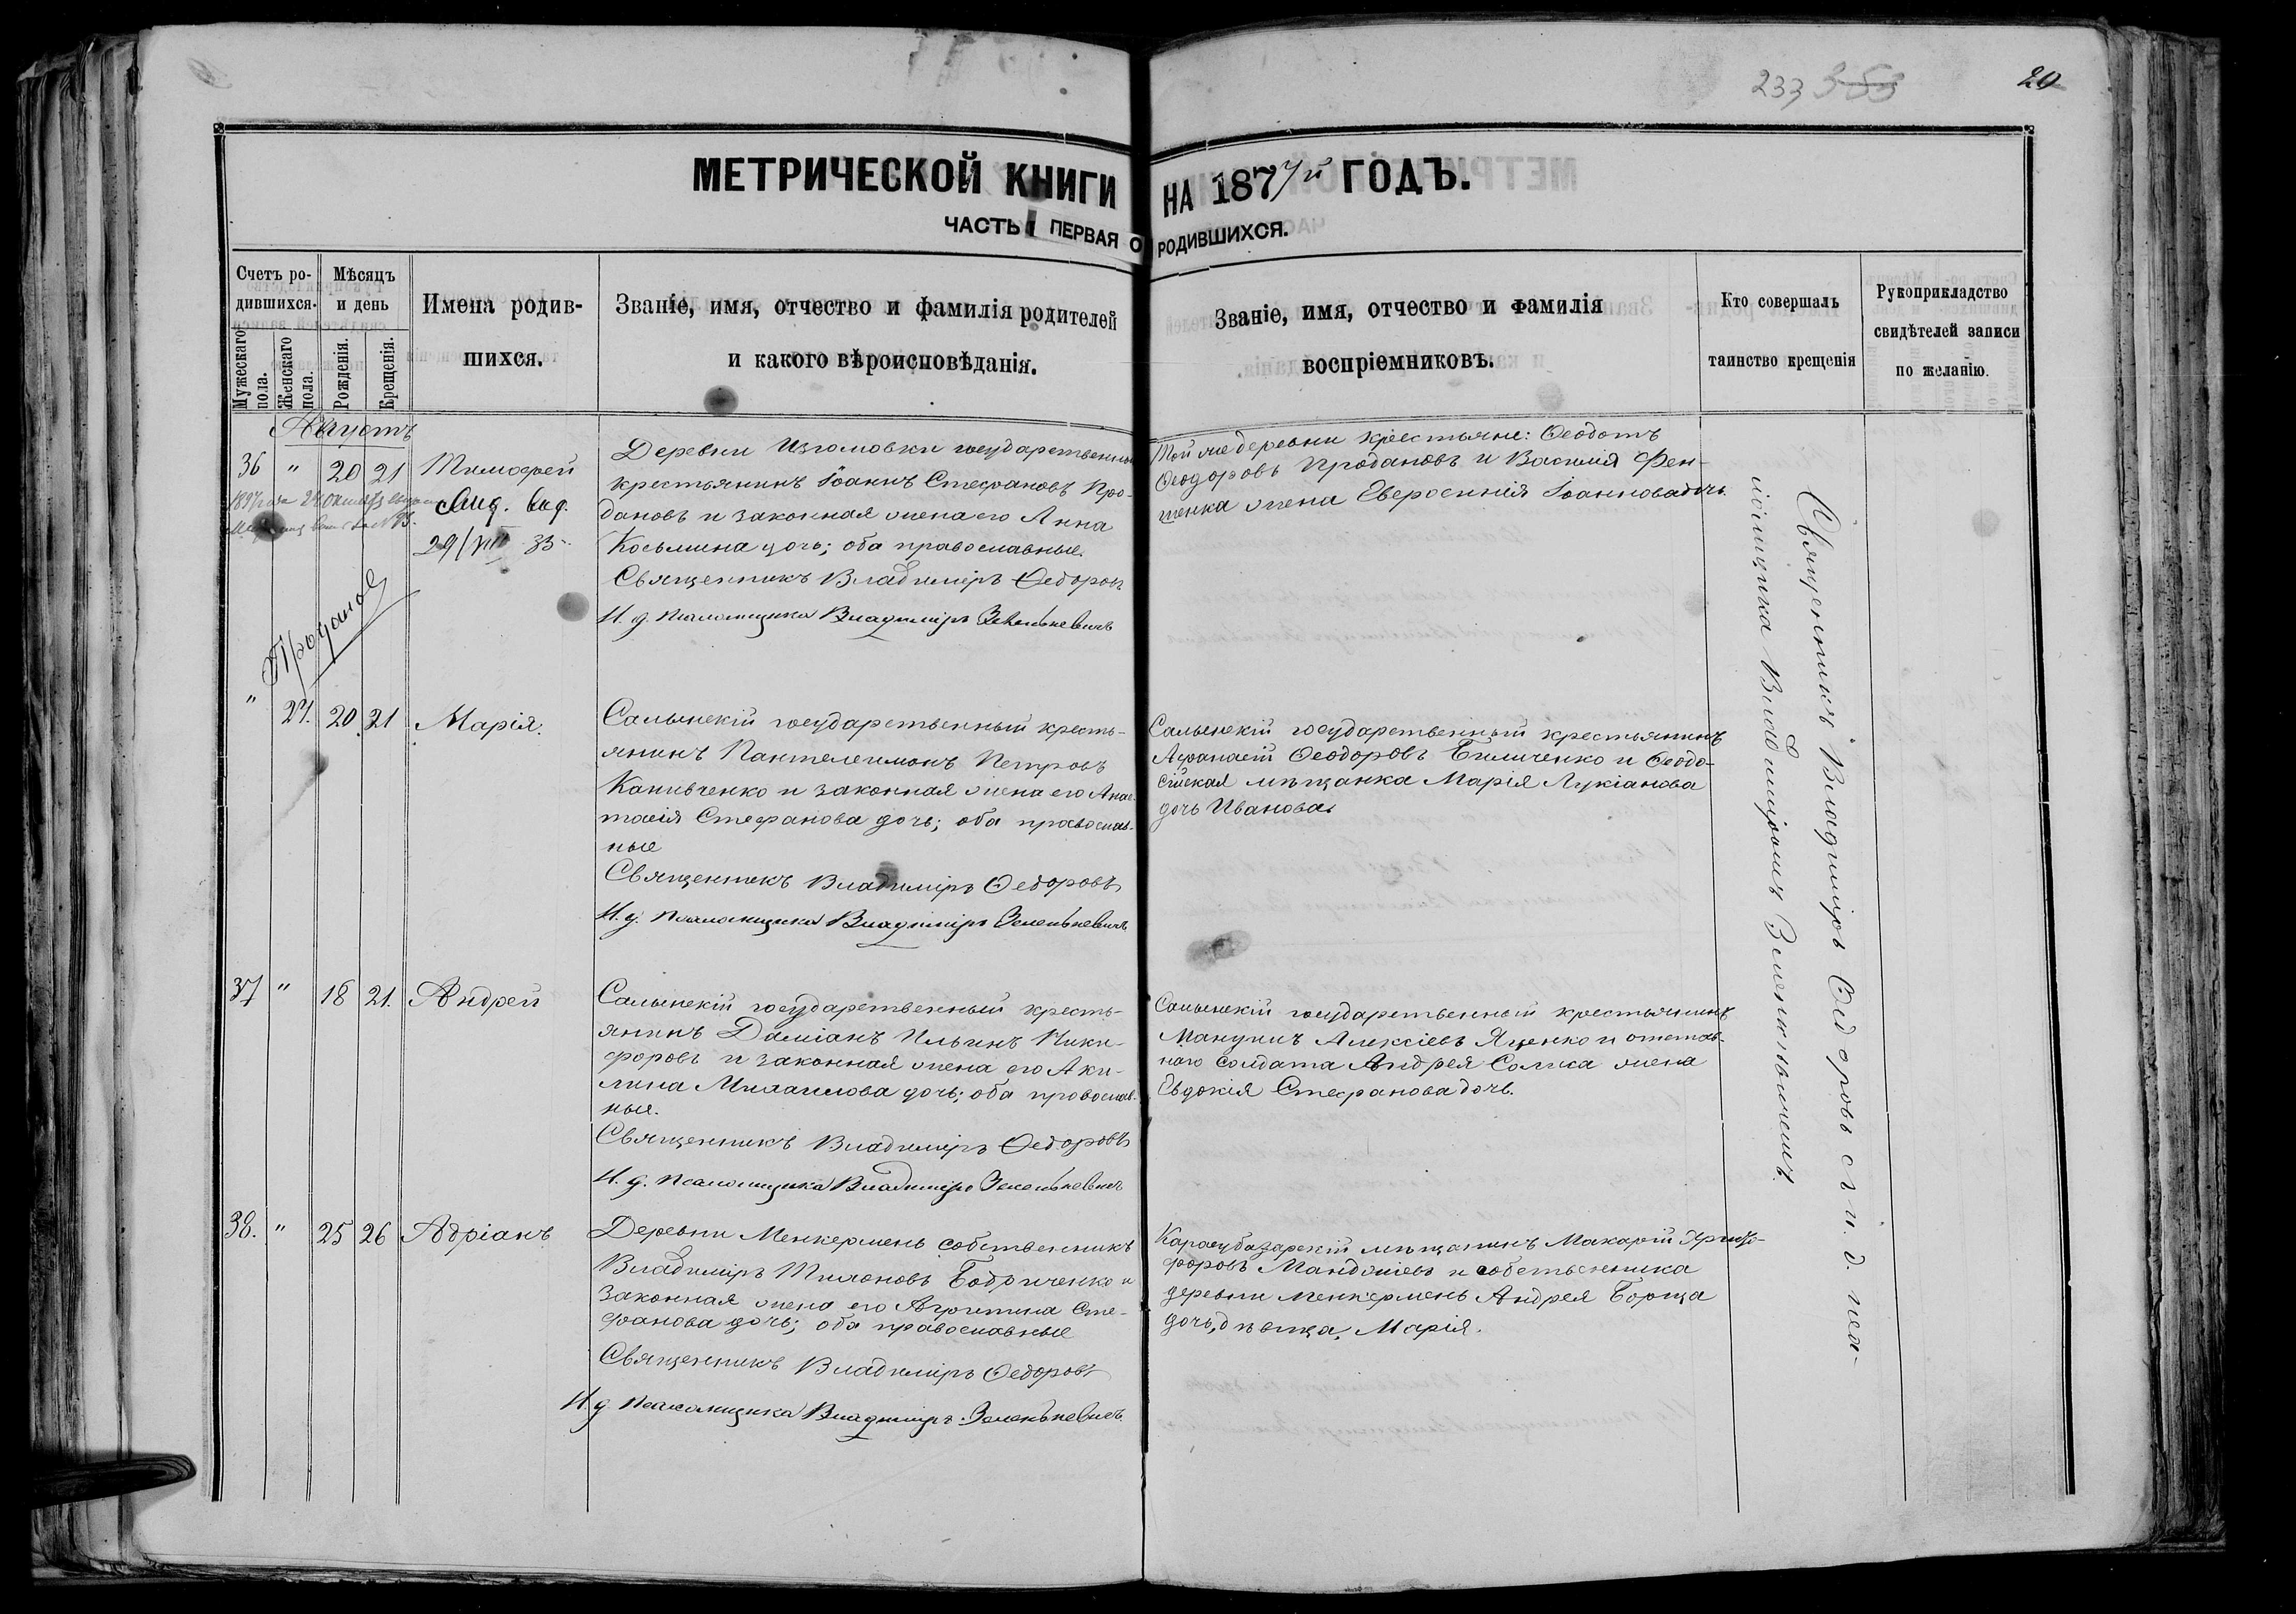 233 353
20
МЕТРИЧЕСКОЙ КНИГИ НА 1877й ГОДЪ.
ЧАСТЬ ПЕРВАЯ О РОДИВШИХСЯ.
Счетъ ро-
дившихся.
Мужескаго пола.
Женскаго пола.
Мѣсяцъ
и день
Рожденія.
Крещенія.
Имена родив-
шихся.
Званіе, имя, отчество и фамилія родителей
и какого вѣроисповѣданія.
Званіе, имя, отчество и фамилія
воспріемниковъ.
Кто совершалъ
таинство крещенія
Рукоприкладство
свидѣтелей записи
по желанію.
Августъ
36 " 20 21 Тимофей
1897 года
Свид. выд.
29/VIII 35
Проданов
Деревни государственный
крестьянинъ Іоаннъ Стефановъ Про-
дановъ и законная жена его Анна
Косьмина дочь; оба православные.
Священникъ Владиміръ Ѳедоровъ
И. д. псаломщика Владиміръ Зеленькевичъ
Той же деревни крестьяне: Ѳеодотъ
Ѳеодоровъ Продановъ и Василія Фен-
женка жена Евфросинія Іоаннова дочь.
" 27. 20 21 Марія.
Салынскій государственный кресть-
янинъ Пантелеимонъ Петровъ
Канивченко и законная жена его Анас-
тасія Стефанова дочь; оба православ-
ные
Священникъ Владиміръ Ѳедоровъ
И. д. псаломщика Владиміръ Зеленькевичъ
Салынскій государственный крестьянинъ
Афанасій Ѳеодоровъ Биличенко и Ѳеодо-
сійская мѣщанка Марія Лукіанова
дочь Иванова
37 " 18 21. Андрей
Салынскій государственный кресть-
янинъ Даміанъ Ильинъ Ники-
форовъ и законная жена его Аки-
лина Михаилова дочь; оба православ-
ные.
Священникъ Владиміръ Ѳедоровъ
И. д. псаломщика Владиміръ Зеленькевичъ
Салынскій государственный крестьянинъ
Мануилъ Алексіевъ Яценко и отстав-
наго солдата Андрея жена
Евдокія Стефанова дочь.
38. " 25 26 Адріанъ
Деревни Менкермень собственникъ
Владиміръ Тихоновъ Бодриченко и
законная жена его Агриппина Сте-
фанова дочь; оба православные
Священникъ Владиміръ Ѳедоровъ
И. д. псаломщика Владиміръ Зеленькевичъ
Карасубазарскій мѣщанинъ Макарій
форовъ и собственника
деревни Менкермень Андрея Борща
дочь, дѣвица, Марія.
Священникъ Владиміръ Ѳедоровъ съ и. д. пса-
ломщика Владиміромъ Зеленькевичемъ.